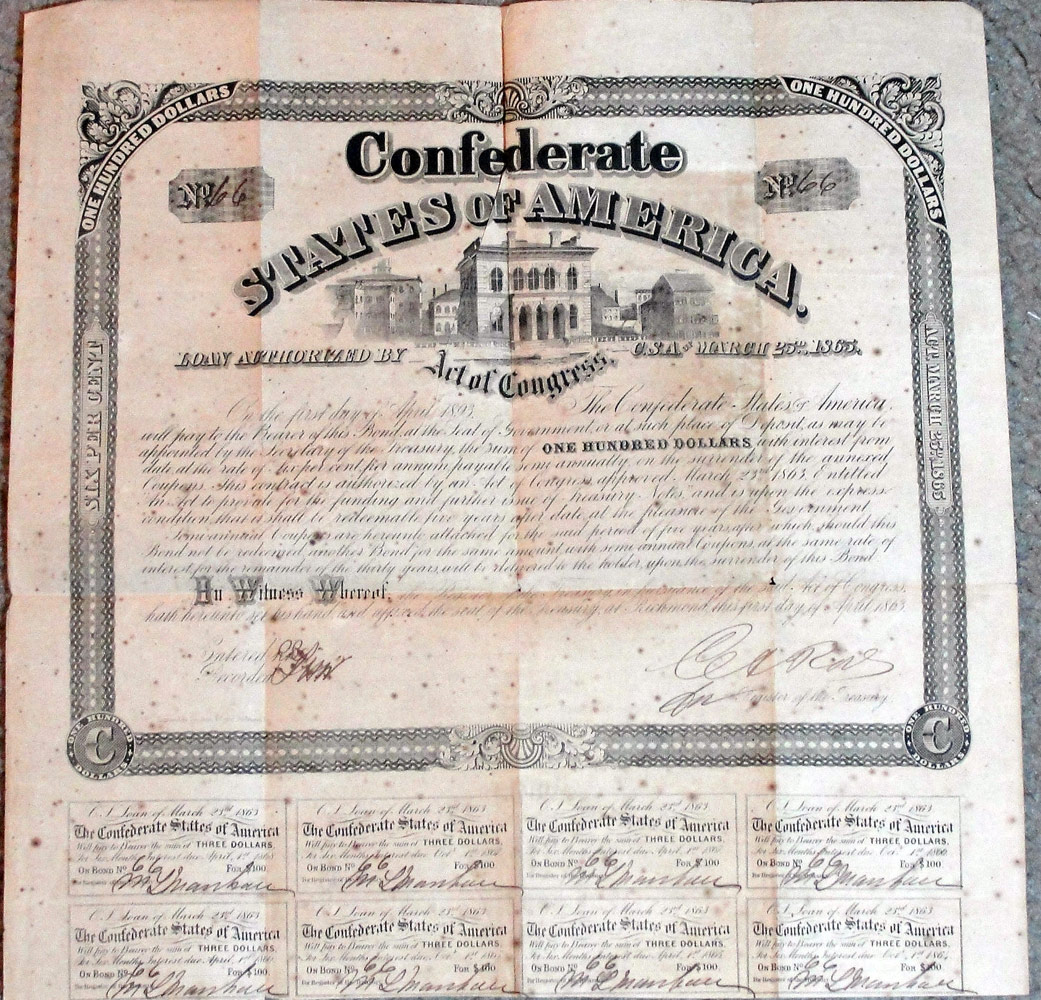 ONE HUNDRED DOLLARS
ONE HUNDRED DOLLARS
Confederate
No 66
No 66
STATES OF AMERICA.
LOAN AUTHORIZED BY
Act of Congress,
C.S.A. OF MARCH 23RD, 1863.
SIX PER CENT
ACT MARCH 23RD, 1863
On the first day of April 1893, The Confederate States of America,
will pay to the Bearer of this Bond, at the Seat of Government, or at such place of Deposit, as may be
appointed by the Secretary of the Treasury, the Sum of ONE HUNDRED DOLLARS with interest from
date, at the rate of Six per cent, per annum, payable semi annually, on the surrender of the annexed
Coupons. This contract is authorized by an Act of Congress, approved, March 23rd 1863, Entitled
An Act to provide for the funding and further issue of Treasury Notes, and is upon the express
condition, that it shall be redeemable five years after date, at the pleasure of the Government.
Semi annual Coupons are hereunto attached for the said period of five years, after which, should this
Bond not be redeemed, another Bond for the same amount, with semi annual Coupons, at the same rate of
interest, for the remainder of the thirty years, will be delivered to the holder, upon the surrender of this Bond
In Witness Whereof, the Register of the Treasury in pursuance of the said Act of Congress,
hath hereunto set his hand, and affixed, the seal of the Treasury, at Richmond, this first day of April 1863
Entered
Recorded
Register of the Treasury
ONE HUNDRED C DOLLARS
ONE HUNDRED C DOLLARS
C.S. Loan of March 23rd 1863
The Confederate States of America
Will pay to Bearer the sum of THREE DOLLARS,
for Six Months Interest due April, 1st
ON BOND No 66 FOR $100
C.S. Loan of March 23rd 1863
The Confederate States of America
Will pay to Bearer the sum of THREE DOLLARS,
for Six Months Interest due
ON BOND No 66 FOR $100
C.S. Loan of March 23rd 1863
The Confederate States of America
Will pay to Bearer the sum of THREE DOLLARS,
for Six Months Interest due April, 1st
ON BOND No 66 FOR $100
C.S. Loan of March 23rd 1863
The Confederate States of America
Will pay to Bearer the sum of THREE DOLLARS,
for Six Months Interest due Octr, 1st
ON BOND No 66 FOR $100
C.S. Loan of March 23rd 1863
The Confederate States of America
Will pay to Bearer the sum of THREE DOLLARS,
for Six Months Interest due April, 1st
ON BOND No 66 FOR $100
C.S. Loan of March 23rd 1863
The Confederate States of America
Will pay to Bearer the sum of THREE DOLLARS,
for Six Months Interest due Octr, 1st
ON BOND No 66 FOR $100
C.S. Loan of March 23rd 1863
The Confederate States of America
Will pay to Bearer the sum of THREE DOLLARS,
for Six Months Interest due April, 1st
ON BOND No 66 FOR $100
C.S. Loan of March 23rd 1863
The Confederate States of America
Will pay to Bearer the sum of THREE DOLLARS,
for Six Months Interest due Octr, 1st
ON BOND No 66 FOR $100